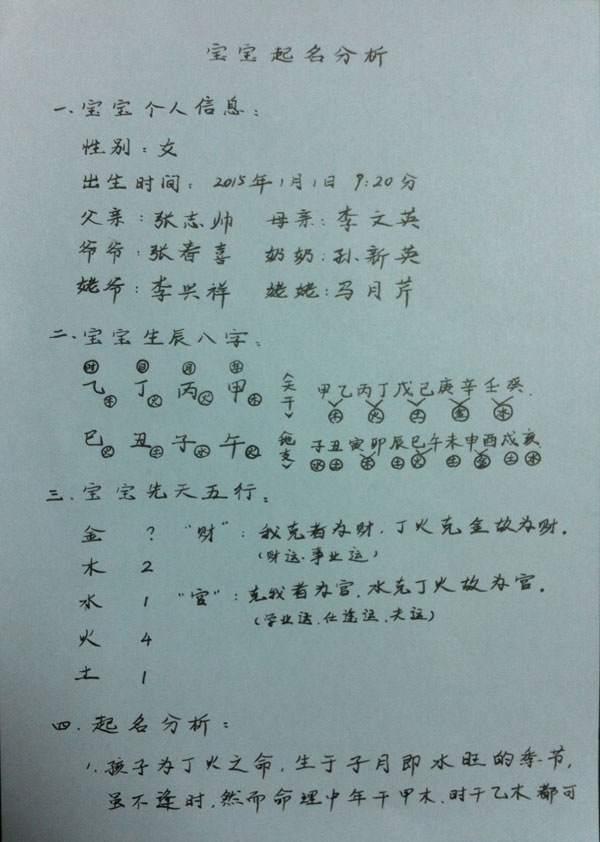 宝宝起名分析
一、宝宝个人信息：
性别：女
出生时间：2015年1月1日 9:20分
父亲：张志帅 母亲：李文英
爷爷：张春喜 奶奶：孙新英
姥爷：李兴祥 姥姥：马月芹
二、宝宝生辰八字：
时 日 月 年
乙木 丁火 丙火 甲木 <天干> 甲乙丙丁戊己庚辛壬癸.
木 火 土 金 水
巳火 丑土 子水 午火 <地支> 子丑寅卯辰巳午未申酉戌亥
水 土 木 土 火 土 金 土 水
三、宝宝先天五行：
金 ? "财"：我克者为财，丁火克金故为财。
(财运、事业运)
木 2
水 1 "官"：克我者为官，水克丁火故为官。
(学业运、仕途运、夫运)
火 4
土 1
四、起名分析：
1. 孩子为丁火之命，生于子月即水旺的季节，
虽不逢时，然而命理中年干甲木、时干乙木都可